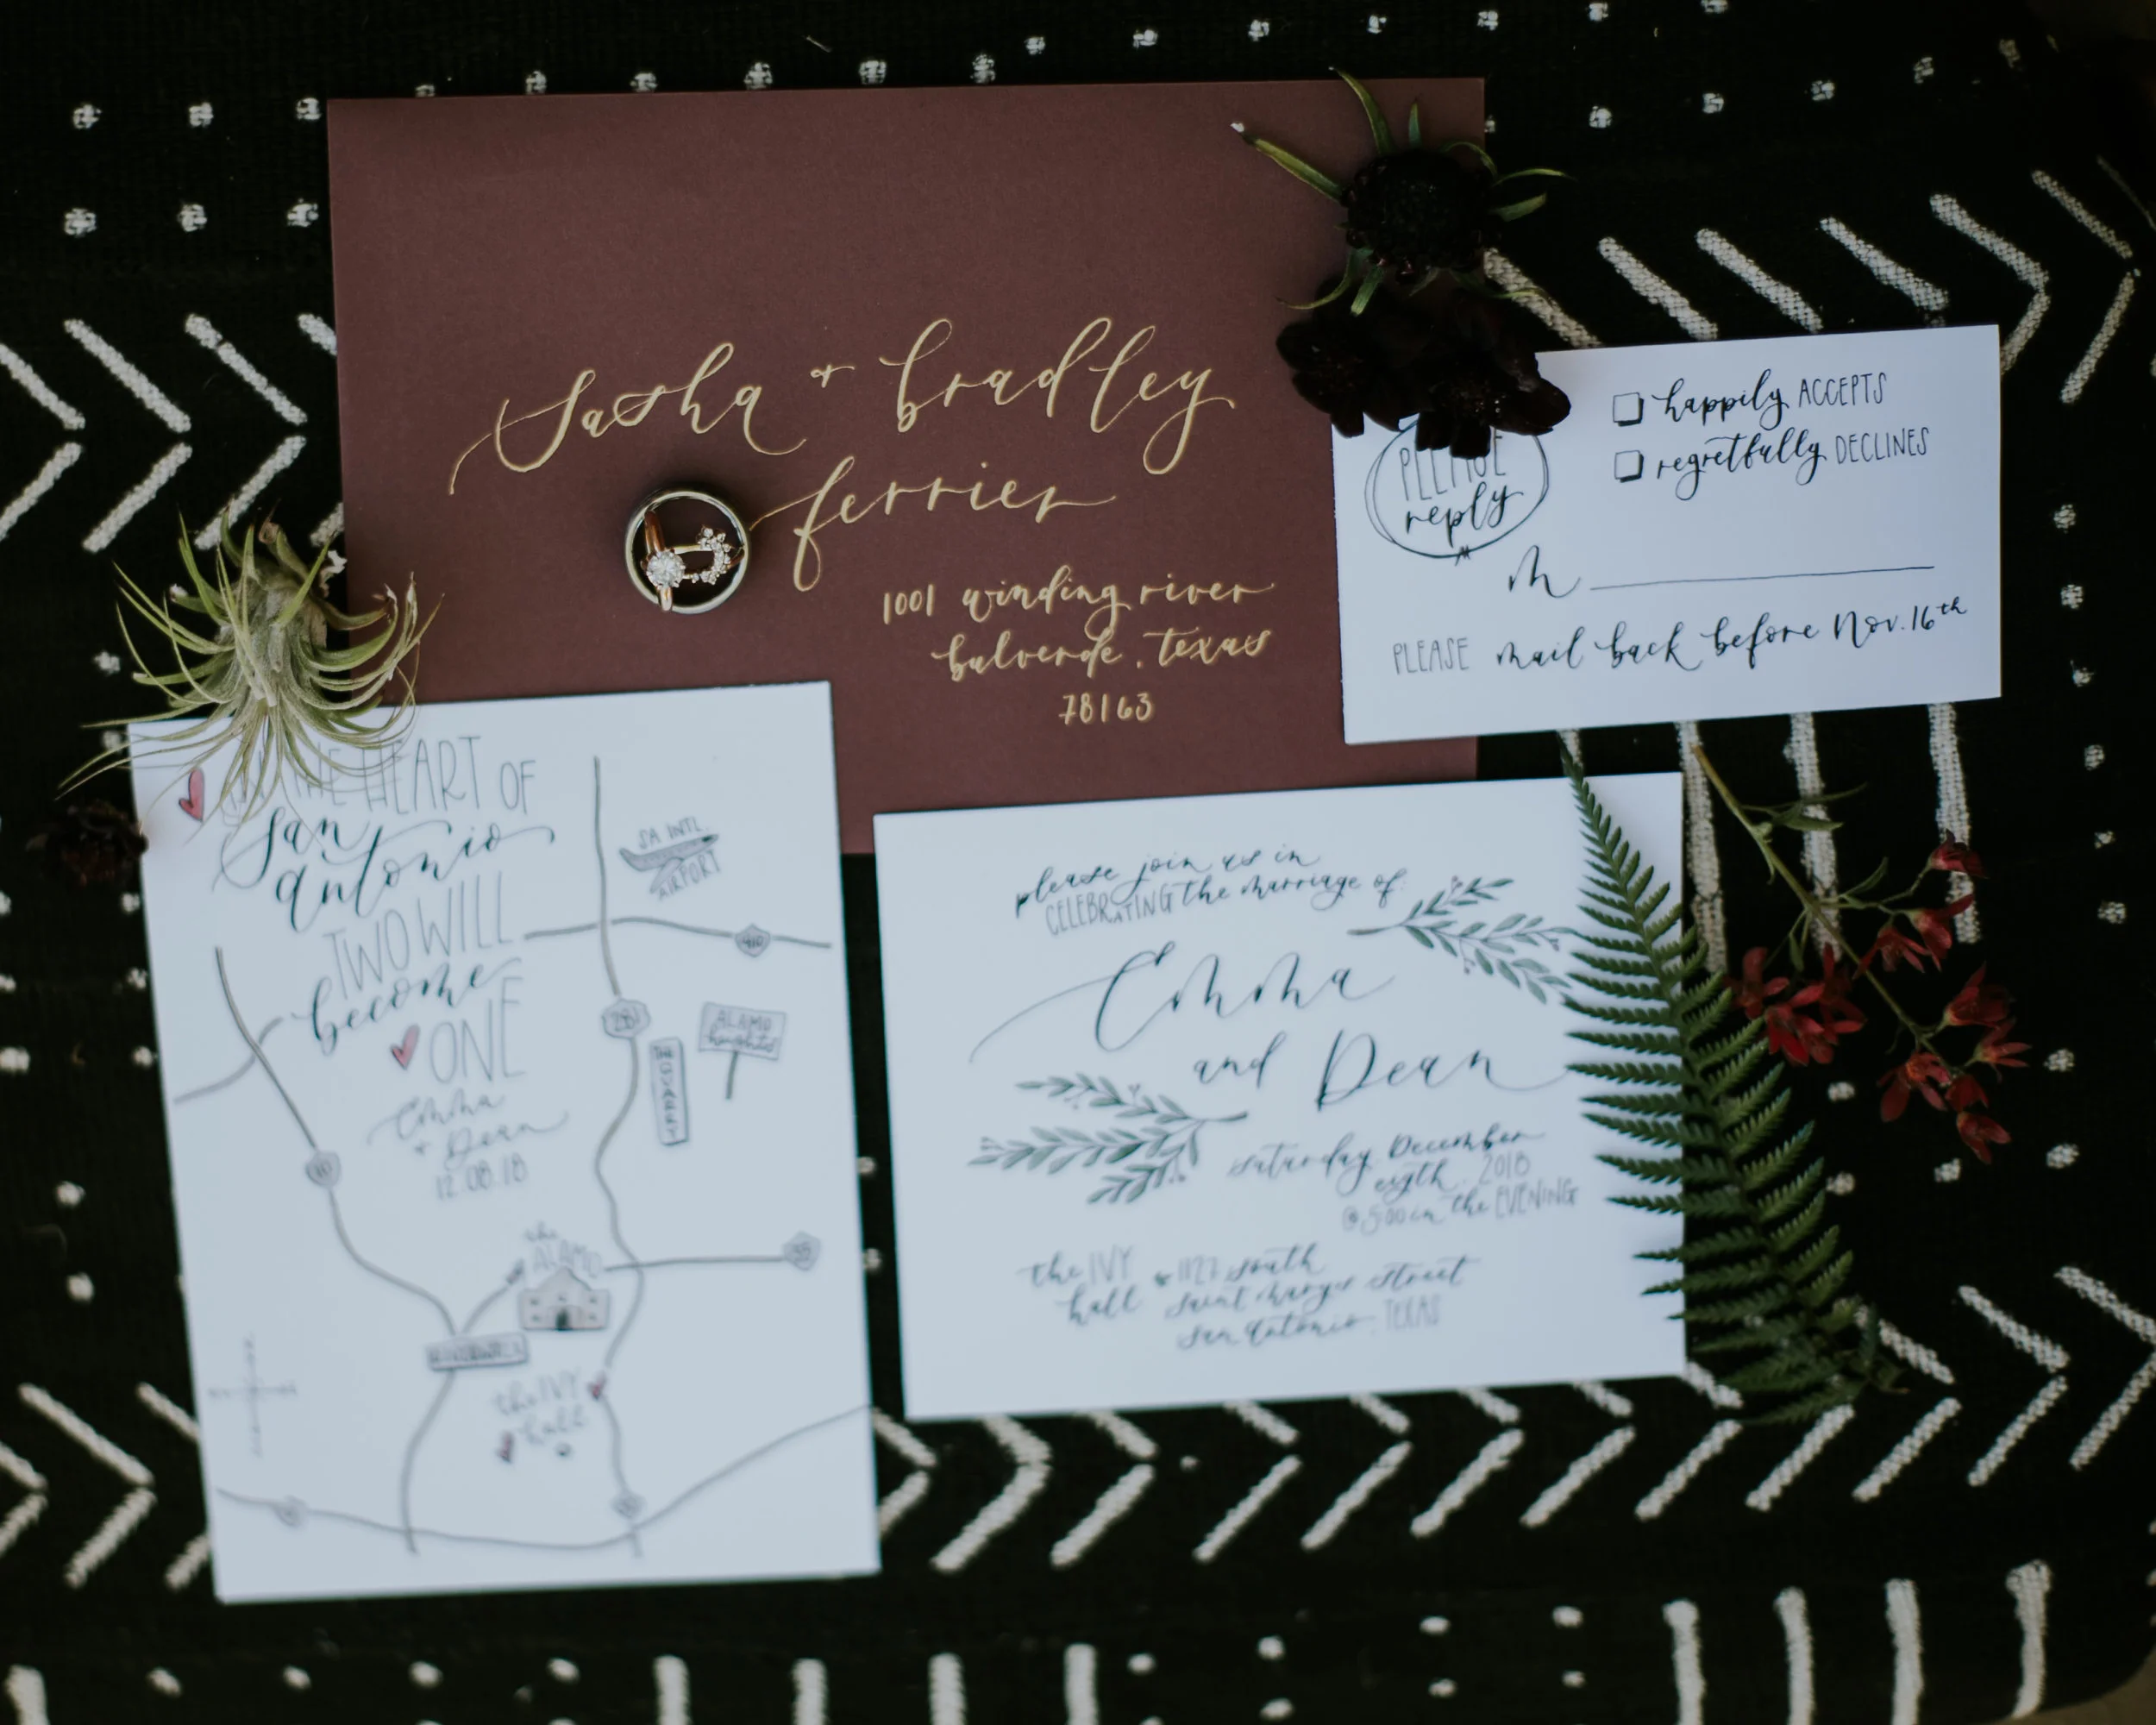 Sasha + bradley
ferrier
1001 winding river
bulverde, texas
78163
happily ACCEPTS
regretfully DECLINES
PLEASE
reply
M
PLEASE mail back before Nov. 16th
THE HEART OF
San
Antonio
TWO WILL
become
ONE
Emma
+ Dean
12.08.18
SA INTL.
AIRPORT
410
281
THE QUARRY
ALAMO
heights
10
the
ALAMO
35
RIVERWALK
the IVY
hall
please join us in
CELEBRATING the marriage of:
Emma
and Dean
saturday, December
eigth, 2018
@ 5:00 in the EVENING
the IVY
hall
south
saint mary's street
san antonio, TEXAS